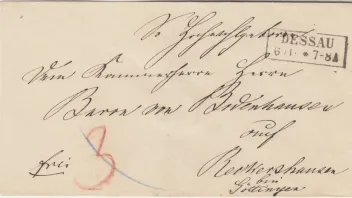 Sr Hochwohlgeboren
DESSAU
7-8
Dem Kammerherrn Herrn
Baron von Bodenhausen
auf
frei
3
Reckershausen
bei
Göttingen